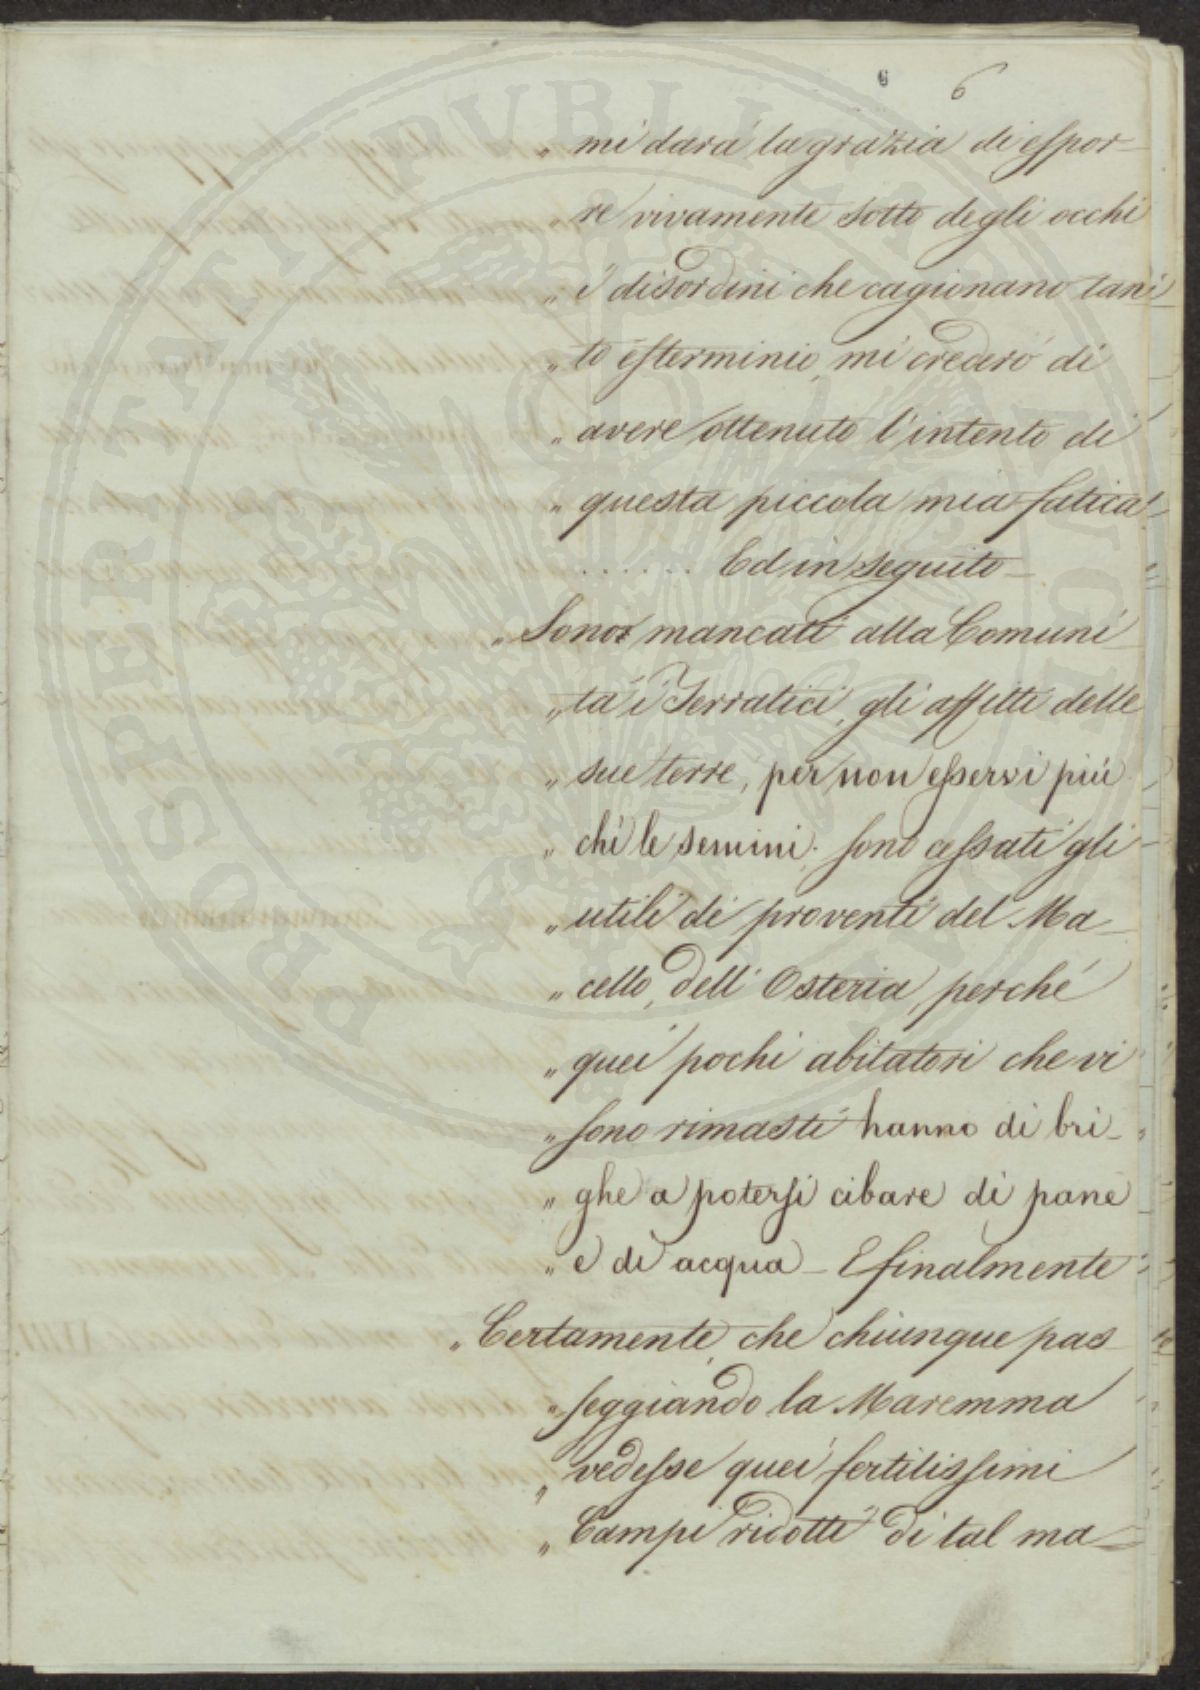 6 6
„ mi dará la grazia di espor-
„ re vivamente sotto degli occhi
„ i disordini che cagionano tan-
„ to esterminio, mi crederó di
„ avere ottenuto l'intento di
„ questa piccola mia fatica
...... Ed in seguito—
„ Sono mancati alla Comuni-
„ tá i Terratici, gli affitti delle
„ sue terre, per non esservi piú
„ chi le semini. Sono cessati gli
„ utili dé proventi del Ma-
„ cello, dell'Osteria, perché
„ quei pochi abitatori che vi
„ sono rimasti hanno di bri-
„ ghe a potersi cibare di pane
„ e di acqua — E finalmente
„ Certamente che chiunque pas-
„ seggiando la Maremma
„ vedesse quei fertilissimi
„ Campi ridotti di tal ma=
PROSPERITATI PUBLICAE AUGENDAE